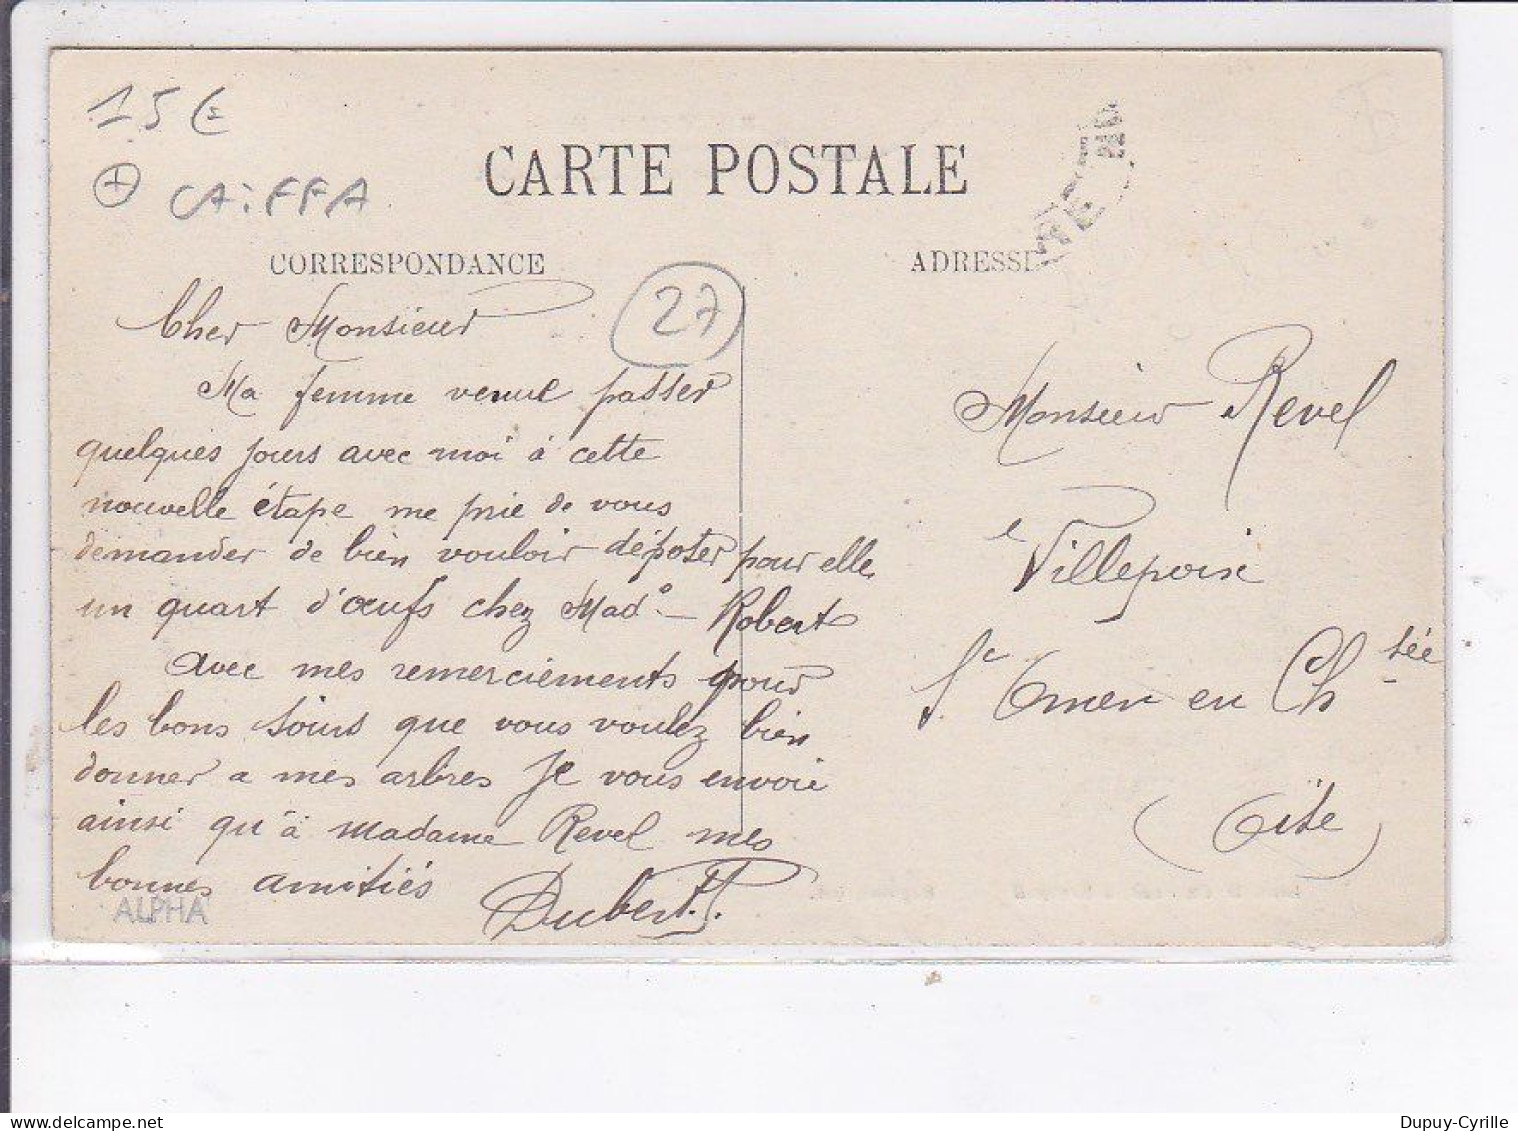 15 €
+ CAiFFA
CARTE POSTALE
CORRESPONDANCE
ADRESSE
27
Cher Monsieur
Ma femme venue passer
quelques jours avec moi à cette
nouvelle étape me prie de vous
demander de bien vouloir déposer pour elle
un quart d'œufs chez Mad^e Robert
Avec mes remerciements pour
les bons soins que vous voulez bien
donner a mes arbres Je vous envoie
ainsi qu'à Madame Revel mes
bonnes amitiés
Dubert
ALPHA
Monsieur Revel
Villepoix
St Omer en Ch^sée
(Oise)
delcampe.net
Dupuy-Cyrille